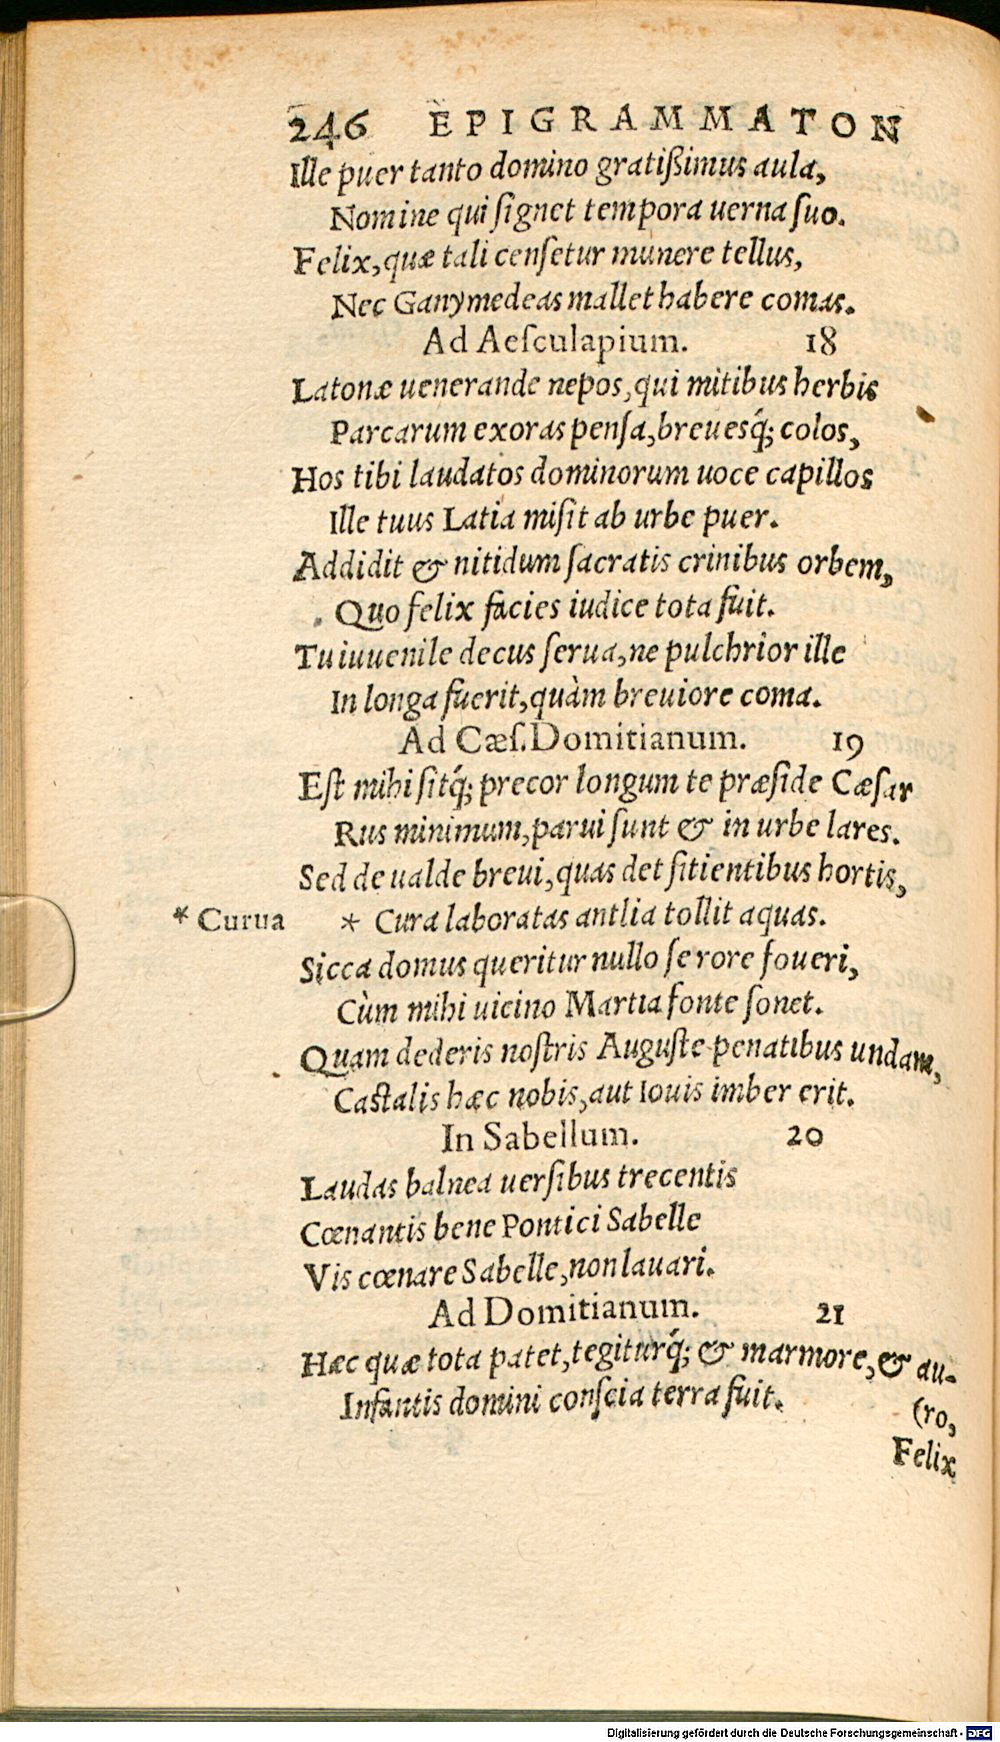 246 EPIGRAMMATON
Ille puer tanto domino gratißimus aula,
Nomine qui ſignet tempora uerna ſuo.
Felix, quæ tali cenſetur munere tellus,
Nec Ganymedeas mallet habere comas.
Ad Aeſculapium. 18
Latonæ uenerande nepos, qui mitibus herbis
Parcarum exoras penſa, breuesq́; colos,
Hos tibi laudatos dominorum uoce capillos
Ille tuus Latia miſit ab urbe puer.
Addidit & nitidum ſacratis crinibus orbem,
Quo felix facies iudice tota fuit.
Tu iuuenile decus ſerua, ne pulchrior ille
In longa fuerit, quàm breuiore coma.
Ad Cæſ. Domitianum. 19
Eſt mihi ſitq́; precor longum te præſide Cæſar
Rus minimum, parui ſunt & in urbe lares.
Sed de ualde breui, quas det ſitientibus hortis,
* Curua * Cura laboratas antlia tollit aquas.
Sicca domus queritur nullo ſe rore foueri,
Cùm mihi uicino Martia fonte ſonet.
Quam dederis noſtris Auguſte penatibus undam,
Caſtalis hæc nobis, aut Iouis imber erit.
In Sabellum. 20
Laudas balnea uerſibus trecentis
Cœnantis bene Pontici Sabelle
Vis cœnare Sabelle, non lauari.
Ad Domitianum. 21
Hæc quæ tota patet, tegiturq́; & marmore, & au-
Infantis domini conſcia terra fuit. (ro,
Felix
Digitalisierung gefördert durch die Deutsche Forschungsgemeinschaft - DFG